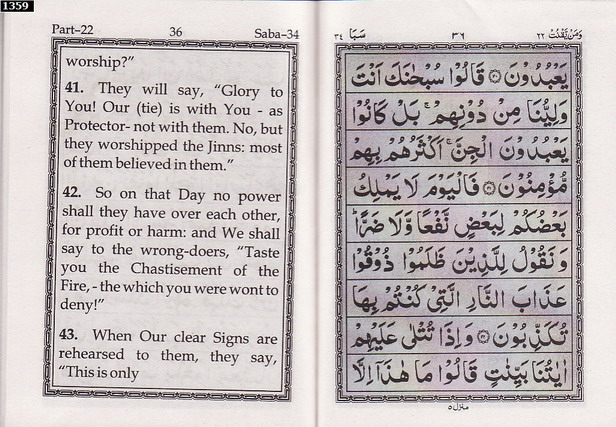 1359
Part–22 36 Saba–34
worship?”
41. They will say, “Glory to
You! Our (tie) is with You - as
Protector- not with them. No, but
they worshipped the Jinns: most
of them believed in them.”
42. So on that Day no power
shall they have over each other,
for profit or harm: and We shall
say to the wrong-doers, “Taste
you the Chastisement of the
Fire,- the which you were wont to
deny!”
43. When Our clear Signs are
rehearsed to them, they say,
“This is only
وَمَنْ يَّقْنُتْ ٢٢ ٣٦ سَبَا ٣٤
يَعْبُدُوْنَ ۞ قَالُوْا سُبْحٰنَكَ اَنْتَ
وَلِيُّنَا مِنْ دُوْنِهِمْ ۚ بَلْ كَانُوْا
يَعْبُدُوْنَ الْجِنَّ ۚ اَكْثَرُهُمْ بِهِمْ
مُّؤْمِنُوْنَ ۞ فَالْيَوْمَ لَا يَمْلِكُ
بَعْضُكُمْ لِبَعْضٍ نَّفْعًا وَّلَا ضَرًّا ؕ
وَنَقُوْلُ لِلَّذِيْنَ ظَلَمُوْا ذُوْقُوْا
عَذَابَ النَّارِ الَّتِيْ كُنْتُمْ بِهَا
تُكَذِّبُوْنَ ۞ وَاِذَا تُتْلٰى عَلَيْهِمْ
اٰيٰتُنَا بَيِّنٰتٍ قَالُوْا مَا هٰذَاۤ اِلَّا
منزل ٥